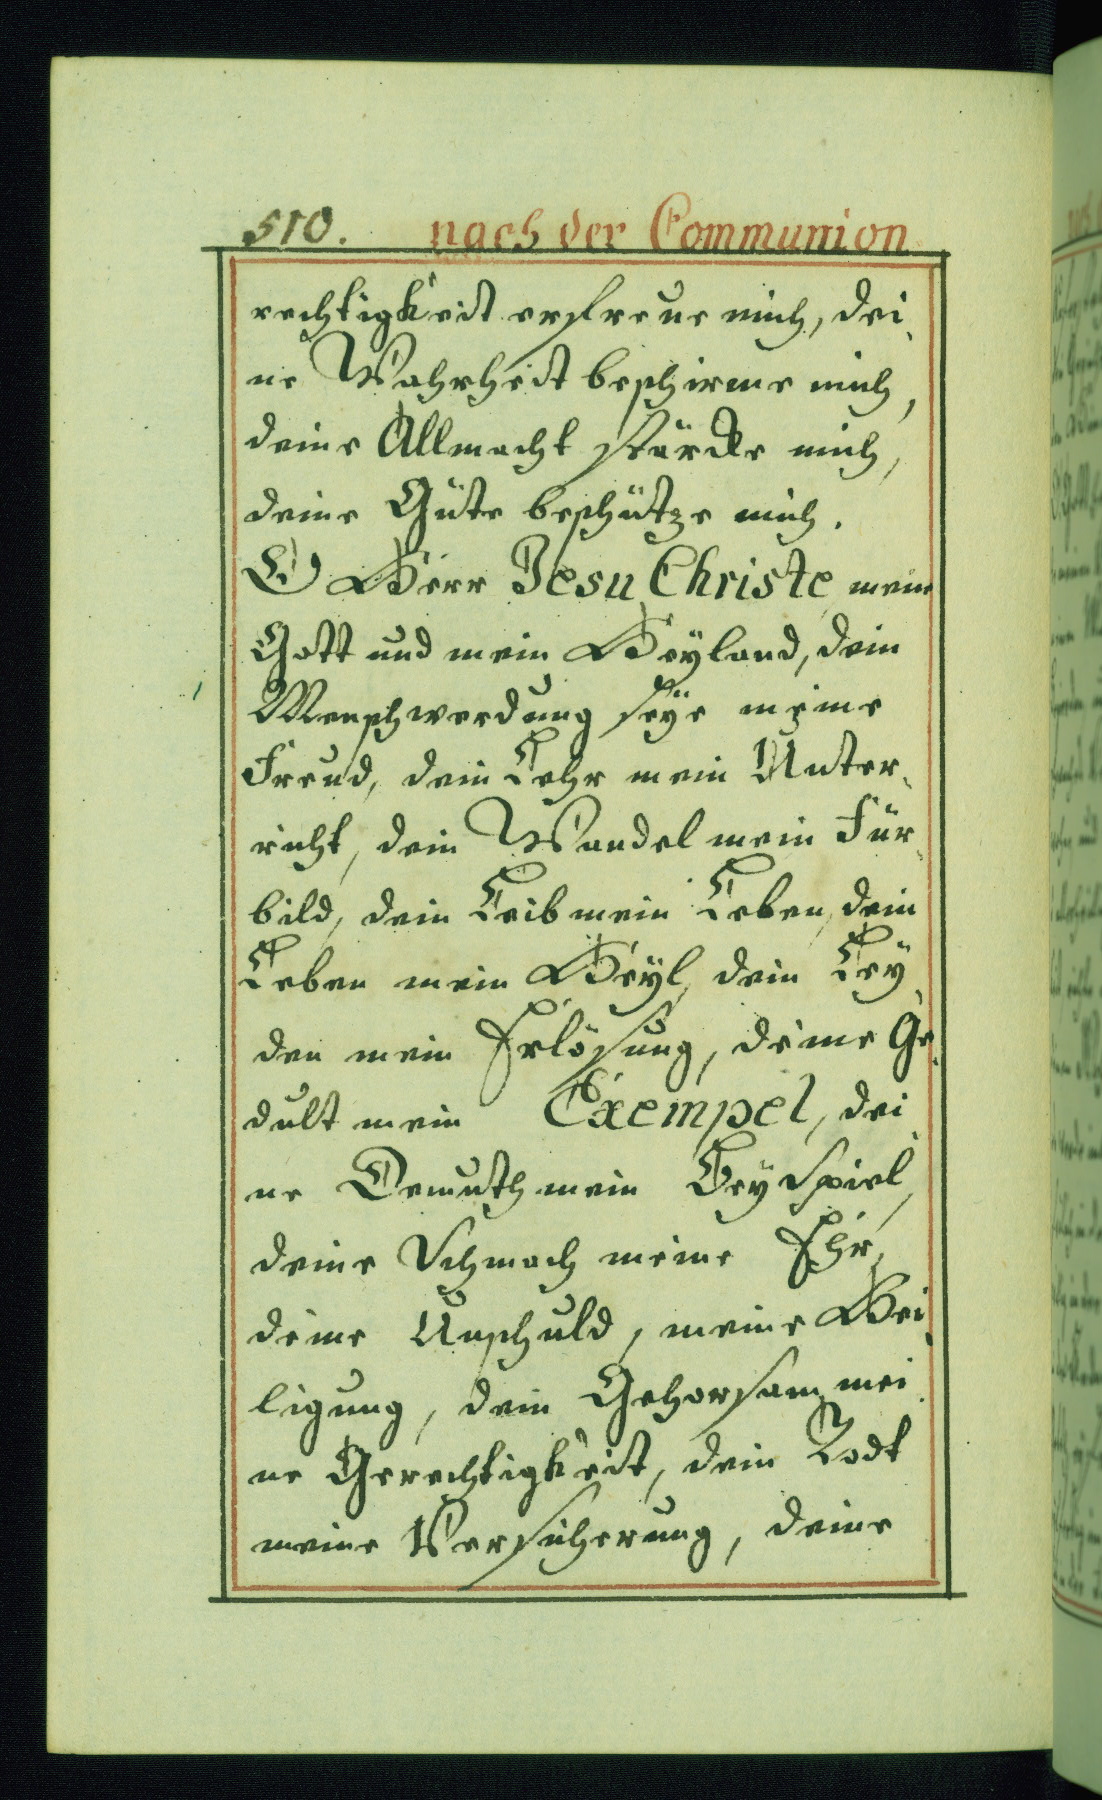 510. nach der Communion
rechtigkeit erfreue mich, dei-
ne Wahrheit beschirme mich,
deine Allmacht stärcke mich,
deine Güte beschütze mich.
O Herr Jesu Christe mein
Gott und mein Heyland, dein
Menschwerdung seÿe meine
Freud, dein Lehr mein Unter-
richt, dein Wandel mein Für-
bild, dein Leib mein Leben, dein
Leben mein Heÿl, dein Leÿ-
den mein Erlösung, deine Ge-
dult mein Exempel, dei-
ne Demuth mein Beÿspiel,
deine Schmach meine Ehr,
deine Unschuld, meine Hei-
ligung, dein Gehorsam mei-
ne Gerechtigkeit, dein Todt
meine Versicherung, deine